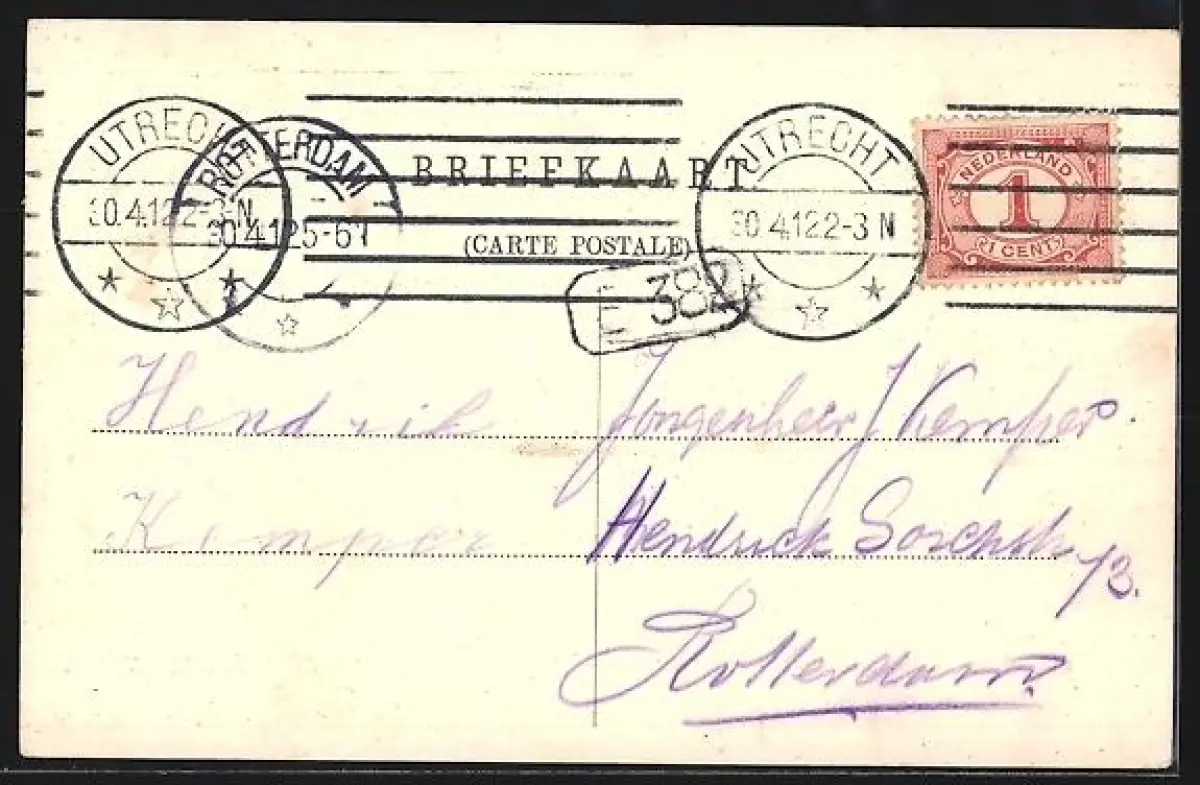 UTRECHT
30.4.12 2-3 N
ROTTERDAM
30.4.12 5-6
BRIEFKAART
(CARTE POSTALE)
UTRECHT
30.4.12 2-3 N
NEDERLAND
1
1 CENT
382
Hendrik
Kemper
Jongenheer J Kemper.
Hendrick
73.
Rotterdam